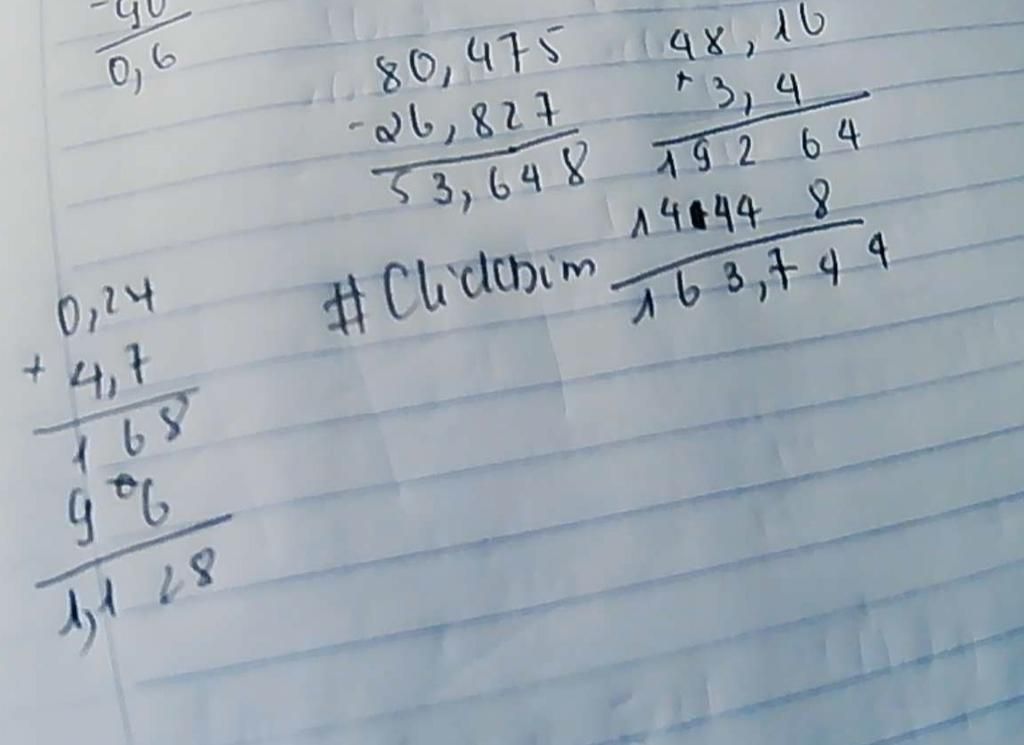 -90
0,6
80,475
-26,827
53,648
48,16
+3,4
19264
14448
163,744
#Clickbim
0,24
+4,7
168
96
1,128